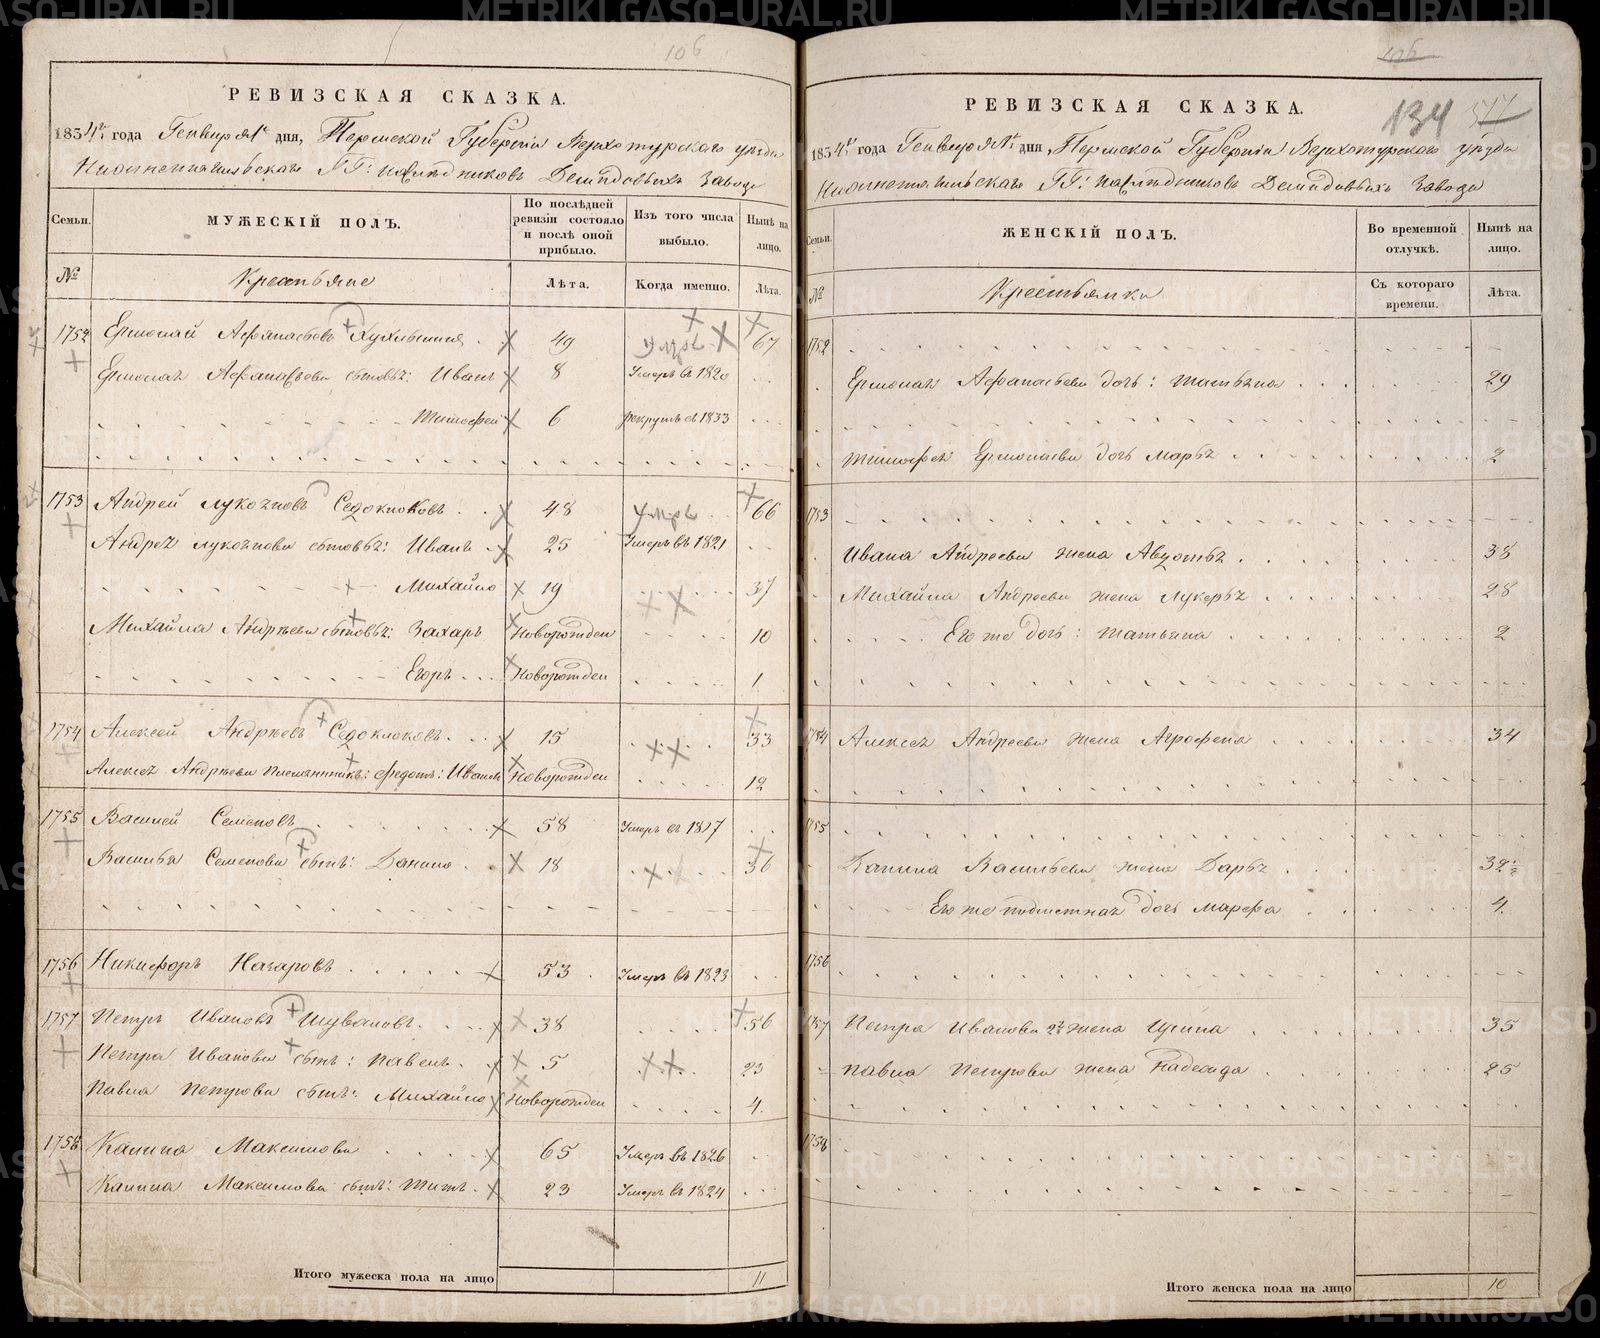 106
РЕВИЗСКАЯ СКАЗКА.
1834го года Генваря 1го дня, Пермской Губернiи Верхотурскаго уѣзда
Нижнетагильскаго ГГ: наслѣдниковъ Демидовыхъ завода
Семьи. МУЖЕСКІЙ ПОЛЪ. По послѣдней ревизіи состояло и послѣ оной прибыло. Изъ того числа выбыло. Нынѣ на лицо.
№ Крестьяне Лѣта. Когда именно. Лѣта.
1752 Ермолай Афанасьевъ 49 умръ 67
Ермолая Афанасьева сыновья: Иванъ 8 Умеръ въ 1820
Тимофей 6 рекрутъ въ 1833
1753 Андрей Лукояновъ Седоклоковъ 48 умръ 66
Андрея Лукоянова сыновья: Иванъ 25 Умеръ въ 1821
Михайло 19 37
Михайла Андрѣева сыновья: Захаръ Новорожден 10
Егоръ Новорожден 1
1754 Алексей Андрѣевъ Седоклоковъ 15 33
Алексея Андрѣева племянникъ: Федотъ: Ивановъ Новорожден 12
1755 Василей Семеновъ 58 Умеръ въ 1827
Василья Семенова сынъ: Данило 18 36
1756 Никифоръ Назаровъ 53 Умеръ въ 1823
1757 Петръ Ивановъ Шуваловъ 38 56
Петра Иванова сынъ: Павелъ 5 23
Павла Петрова сынъ: Михайло Новорожден 4.
1758 Калина Максимовъ 65 Умеръ въ 1826
Калина Максимова сынъ: Титъ 23 Умеръ въ 1824
Итого мужеска пола на лицо 11
106
134 577
РЕВИЗСКАЯ СКАЗКА.
1834го года Генваря 1го дня, Пермской Губернiи Верхотурскаго уѣзда
Нижнетагильскаго ГГ: наслѣдниковъ Демидовыхъ завода
Семьи. ЖЕНСКІЙ ПОЛЪ. Во временной отлучкѣ. Нынѣ на лицо.
№ Крестьянки Съ котораго времени. Лѣта.
1752
Ермолая Афанасьева дочь: Татьяна 29
Тимофея Ермолаева дочь Марья 2
1753
Ивана Андреева жена Авдотья 38
Михайла Андреева жена Лукерья 28
Его же дочь: Татьяна 2
1754 Алексея Андреева жена Агрофена 34
1755
Данила Васильева жена Дарья 32
Его же дочь Марфа 4.
1756
1757 Петра Иванова 2я жена Ирина 35
Павла Петрова жена Надежда 25
1758
Итого женска пола на лицо 10
METRIKI.GASO-URAL.RU